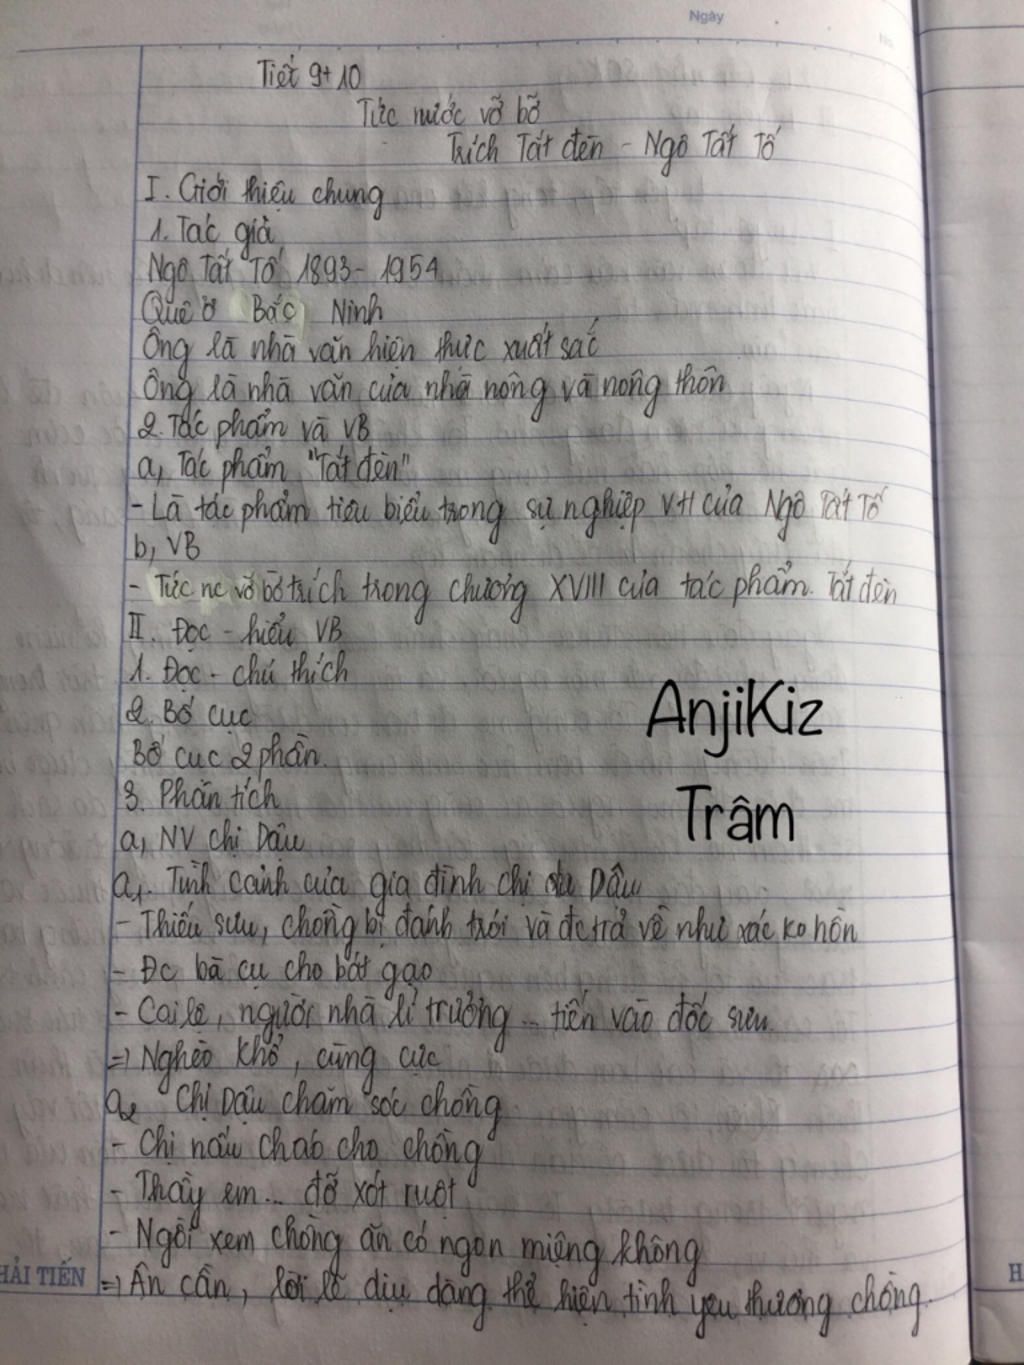 Ngày
No
Tiết 9+10
Tức nước vỡ bờ
Trích Tắt đèn - Ngô Tất Tố
I. Giới thiệu chung
1. Tác giả
Ngô Tất Tố 1893 - 1954
Quê ở Bắc Ninh
Ông là nhà văn hiện thực xuất sắc
Ông là nhà văn của nhà nông và nông thôn
2. Tác phẩm và VB
a, Tác phẩm "Tắt đèn"
- Là tác phẩm tiêu biểu trong sự nghiệp VH của Ngô Tất Tố
b, VB
- Tức nc vỡ bờ trích trong chương XVIII của tác phẩm Tắt đèn
II. Đọc - hiểu VB
1. Đọc - chú thích
2. Bố cục
Bố cục 2 phần.
3. Phân tích
a, NV chị Dậu
a1. Tình cảnh của gia đình chị Dậu
- Thiếu sưu, chồng bị đánh trói và đc trả về như xác ko hồn
- Đc bà cụ cho bát gạo
- Cai lệ, người nhà lí trưởng... tiến vào đốc sưu.
=> Nghèo khổ, cùng cực
a2 Chị Dậu chăm sóc chồng
- Chị nấu cháo cho chồng
- Thầy em... đỡ xót ruột
- Ngồi xem chồng ăn có ngon miệng không
=> Ân cần, lời lẽ dịu dàng thể hiện tình yêu thương chồng.
AnjiKiz
Trâm
HẢI TIẾN
H